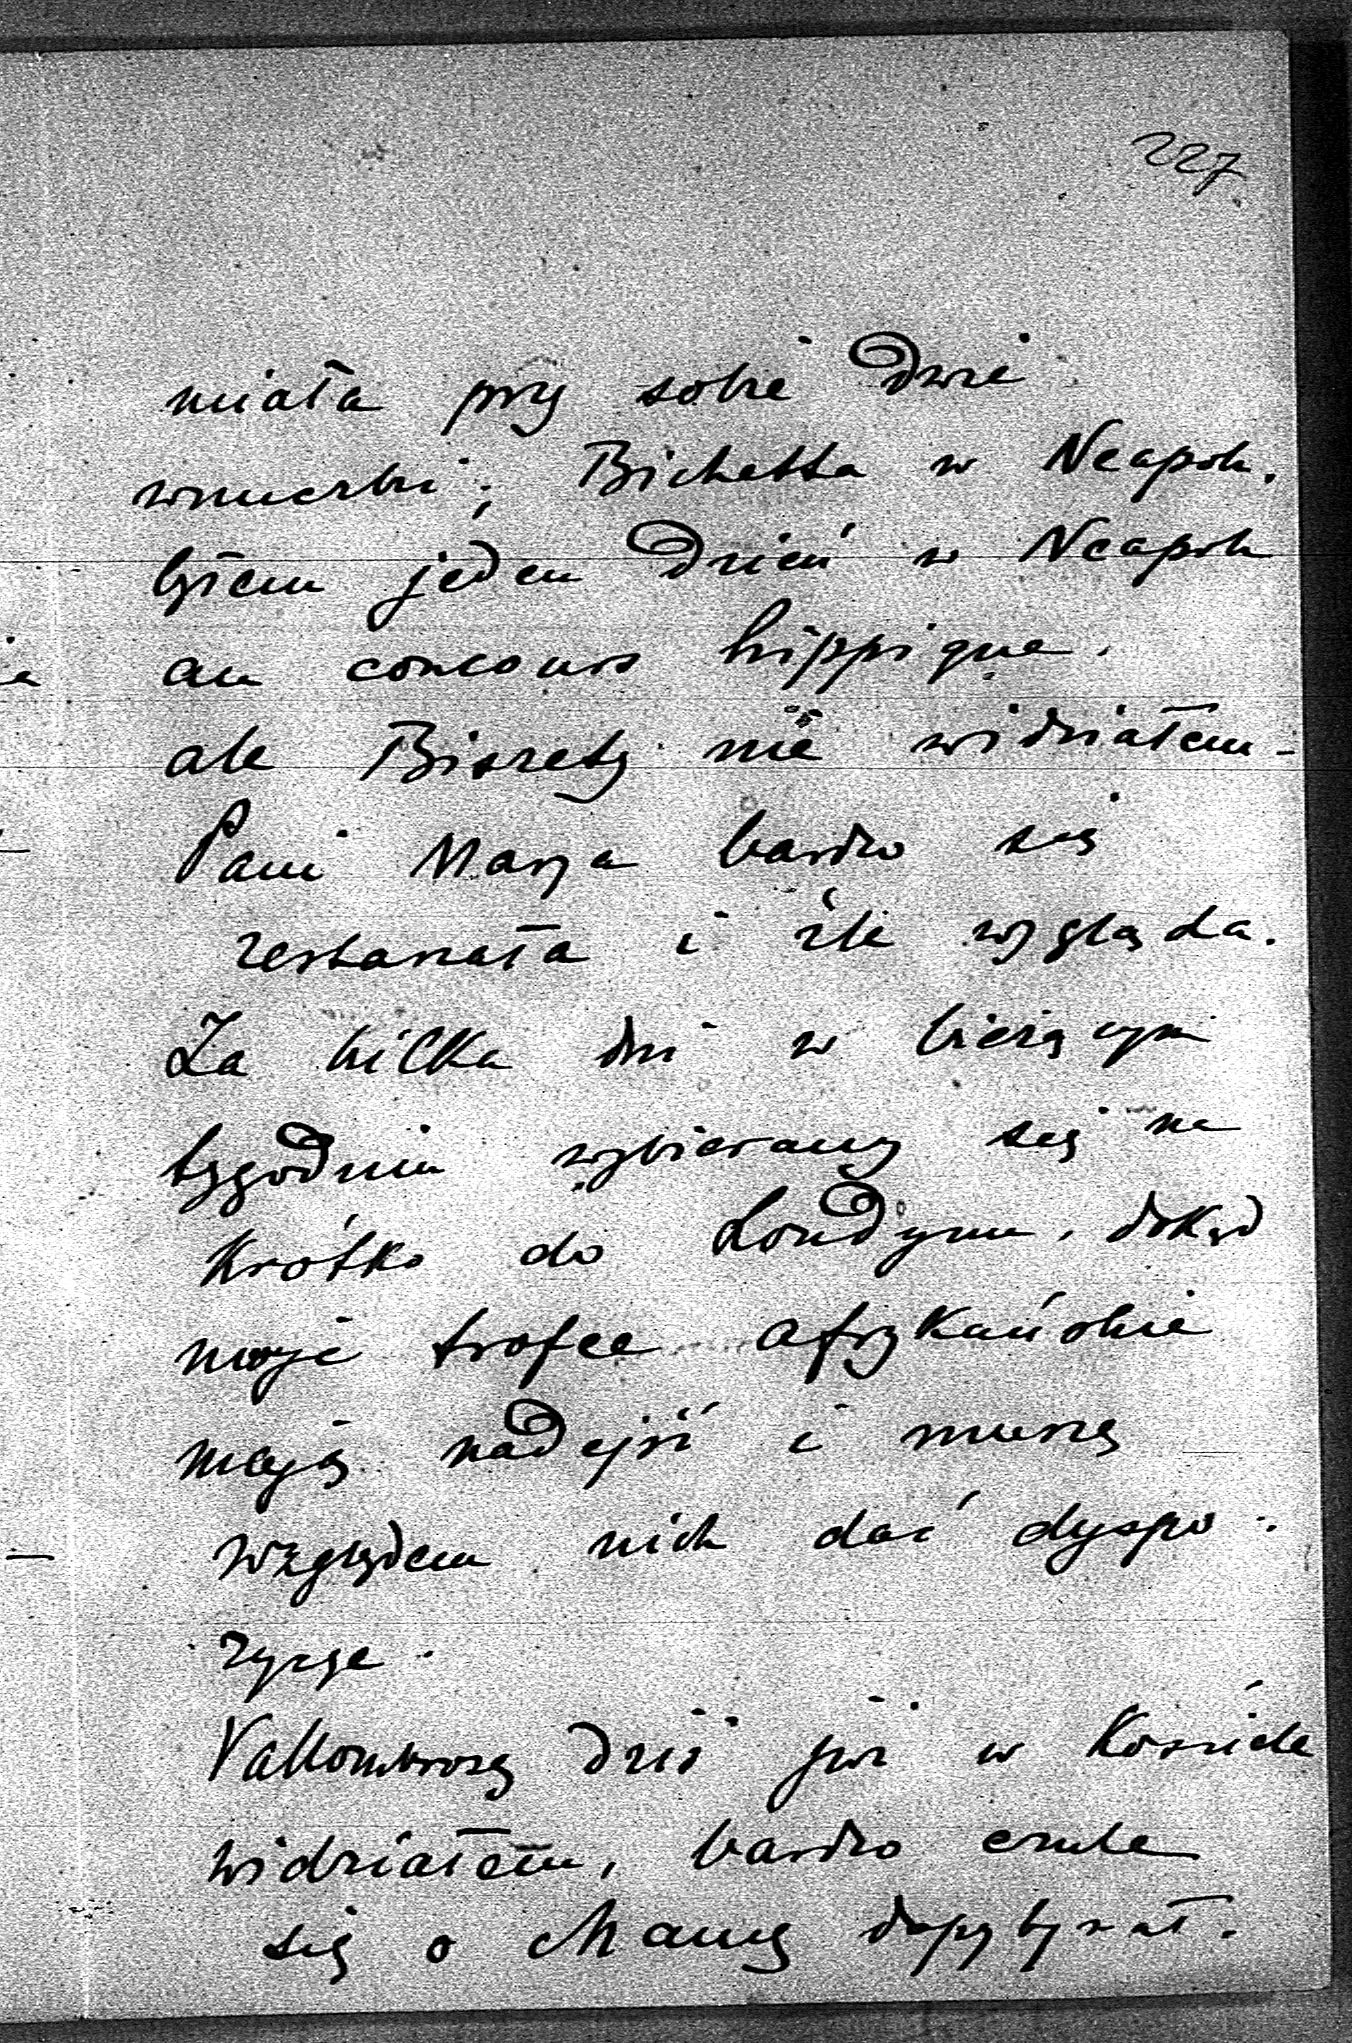 227
miała przy sobie dwie
wnuczki; Bichetta w Neapolu.
byłem jeden dzień w Neapolu
au concours hippique,
ale Biszety nie widziałem -
Pani Marja bardzo się
zestarzała i źle wygląda.
Za kilka dni w bieżącym
tygodniu wybieramy się na
krótko do Londynu, dokąd
moje trofee afrykańskie
mają nadejść i muszę
względem nich dać dyspo-
zycye.
Vallombrozę dziś już w Kościele
widziałem, bardzo czule
się o Mamę dopytywał.